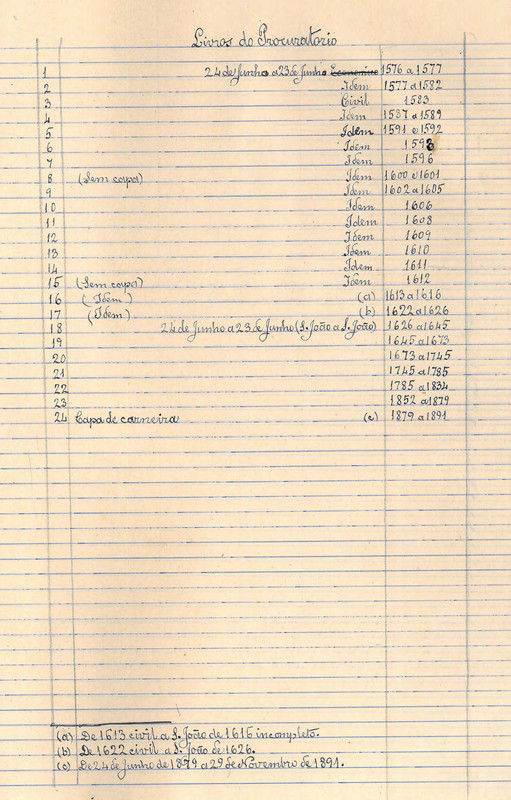 Livros do Procuratorio
1 24 de Junho a 23 de Junho Economico 1576 a 1577
2 Idem 1577 a 1582
3 Civil 1583
4 Idem 1587 a 1589
5 Idem 1591 e 1592
6 Idem 1593
7 Idem 1596
8 (Sem capa) Idem 1600 e 1601
9 Idem 1602 a 1605
10 Idem 1606
11 Idem 1608
12 Idem 1609
13 Idem 1610
14 Idem 1611
15 (Sem capa) Idem 1612
16 (Idem) (a) 1613 a 1616
17 (Idem) (b) 1622 a 1626
18 24 de Junho a 23 de Junho (S. João a S. João) 1626 a 1645
19 1645 a 1673
20 1673 a 1745
21 1745 a 1785
22 1785 a 1834
23 1852 a 1879
24 Capa de carneira (c) 1879 a 1891
(a) De 1613 civil a S. João de 1616 incompleto.
(b) De 1622 civil a S. João de 1626.
(c) De 24 de Junho de 1879 a 29 de Novembro de 1891.